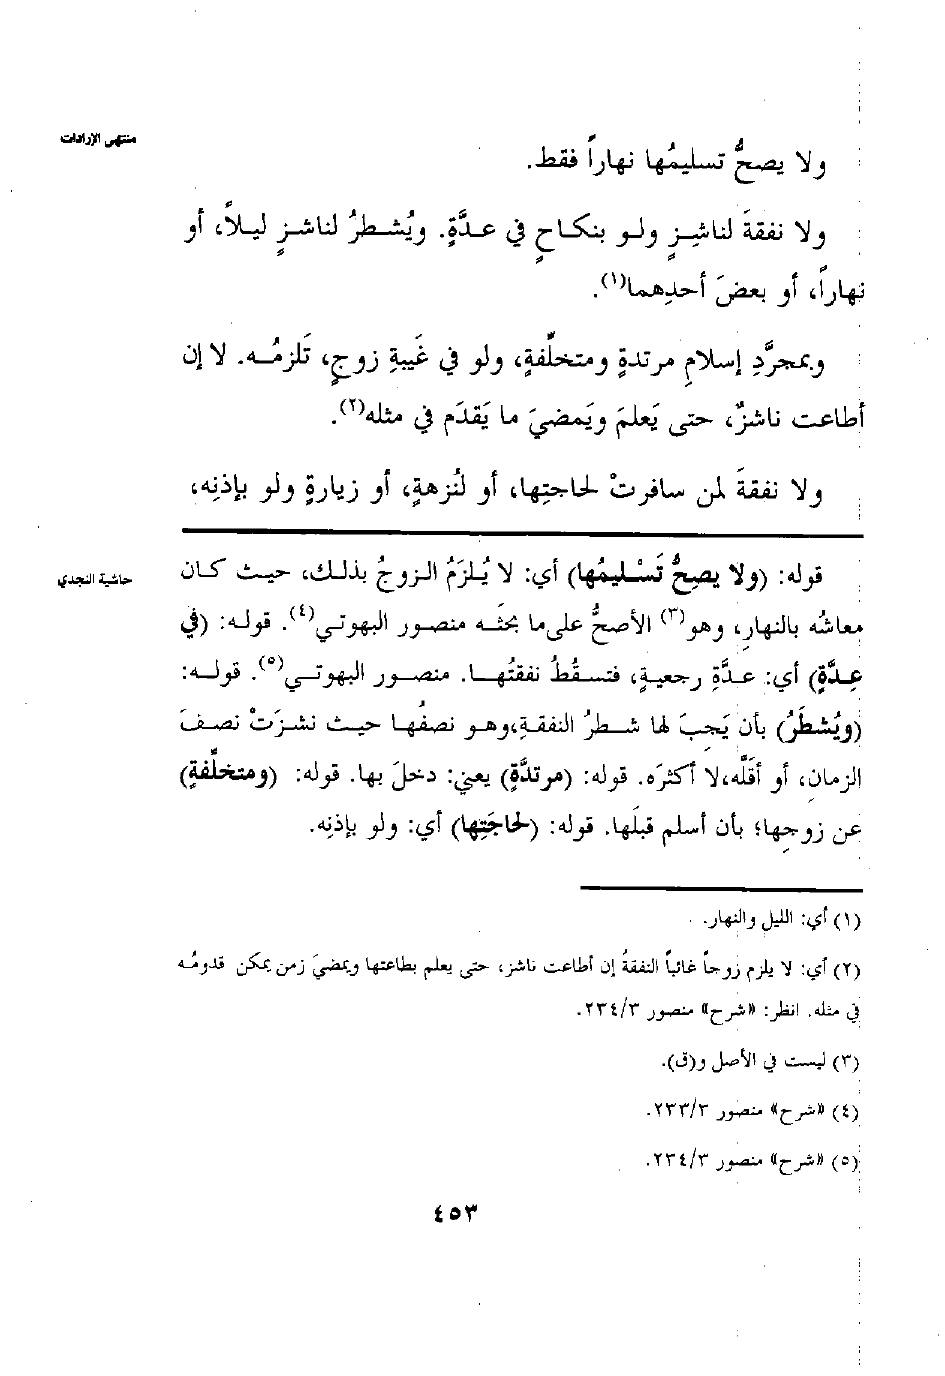 منتهى الإرادات
ولا يصحُّ تسليمُها نهاراً فقط.
ولا نفقةَ لناشِزٍ ولو بنكاحٍ في عدَّةٍ. ويُشطرُ لناشزٍ ليلاً، أو
نهاراً، أو بعضَ أحدِهما(١).
وبمجرَّدِ إسلامِ مرتدةٍ ومتخلِّفةٍ، ولو في غَيبةِ زوجٍ، تَلزمُه. لا إن
أطاعت ناشزٌ، حتى يَعلمَ ويَمضيَ ما يَقدَم في مثله(٢).
ولا نفقةَ لمن سافرتْ لحاجتِها، أو لنُزهةٍ، أو زيارةٍ ولو بإذنِه،
حاشية النجدي
قوله: (ولا يصحُّ تَسْليمُها) أي: لا يُلزَمُ الزوجُ بذلك، حيث كان
معاشُه بالنهارِ، وهو(٣) الأصحُّ على ما بحثَه منصور البهوتي(٤). قوله: (في
عِدَّةٍ) أي: عدَّةِ رجعيةٍ، فتسقُطُ نفقتُها. منصور البهوتي(٥). قوله:
(ويُشطَرُ) بأن يَجبَ لها شطرُ النفقةِ،وهو نصفُها حيث نشزَتْ نصفَ
الزمانِ، أو أقلَّه،لا أكثرَه. قوله: (مرتدَّةٍ) يعني: دخلَ بها. قوله: (ومتخلِّفةٍ)
عن زوجِها؛ بأن أسلم قبلَها. قوله: (لحاجَتِها) أي: ولو بإذنِه.
(١) أي: الليل والنهار.
(٢) أي: لا يلزم زوجاً غائباً النفقةُ إن أطاعت ناشز، حتى يعلم بطاعتها ويمضيَ زمن يمكن قدومُه
في مثله. انظر: «شرح» منصور ٢٣٤/٣.
(٣) ليست في الأصل و(ق).
(٤) «شرح» منصور ٢٣٣/٣.
(٥) «شرح» منصور ٢٣٤/٣.
٤٥٣